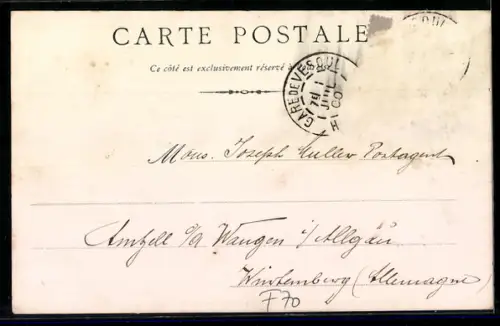 CARTE POSTALE
Ce côté est exclusivement réservé à
GARE DE VESOUL
JUIL
00
Mons. Joseph Müller Postagent
Amtzell o/a Wangen i/Allgäu
Würtemberg (Allemagne)
F70